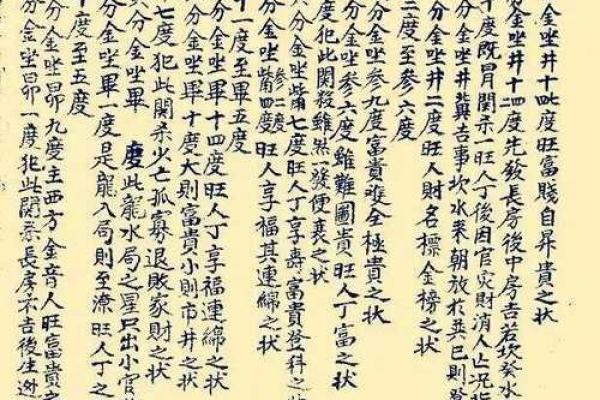 金坐井十四度旺富賤自昇貴之狀
金坐井十四度先發長房後中房吉若坎癸水
十度既冒関杀一旺人丁後因官灾財消人亡况
分金坐井吉事坎水来朝放於巽巳則登
分金坐井二度旺人財名標金榜之狀
三度至參六度
分金坐參九度富貴雙全極貴之狀
分金坐參六度雖難圖貴旺人丁富之狀
度犯此関殺雖然一發便衰之状
分金坐觜七度旺人丁享壽富貴登科之狀
分金坐觜四度旺人享福其連綿之狀
十一度至畢五度
分金坐畢十四度旺人丁享福連綿之狀
分金坐畢十度大則富貴小則市井之狀
七度犯此関杀少亡孤寡退敗家財之狀
分金坐畢 此龍水局之星只出小官
分金坐畢一度是龍入局則至潦旺人丁之
度至五度
分金坐昴九度主西方金音人旺富貴之
分金坐昴一度犯此関杀長房不吉後生